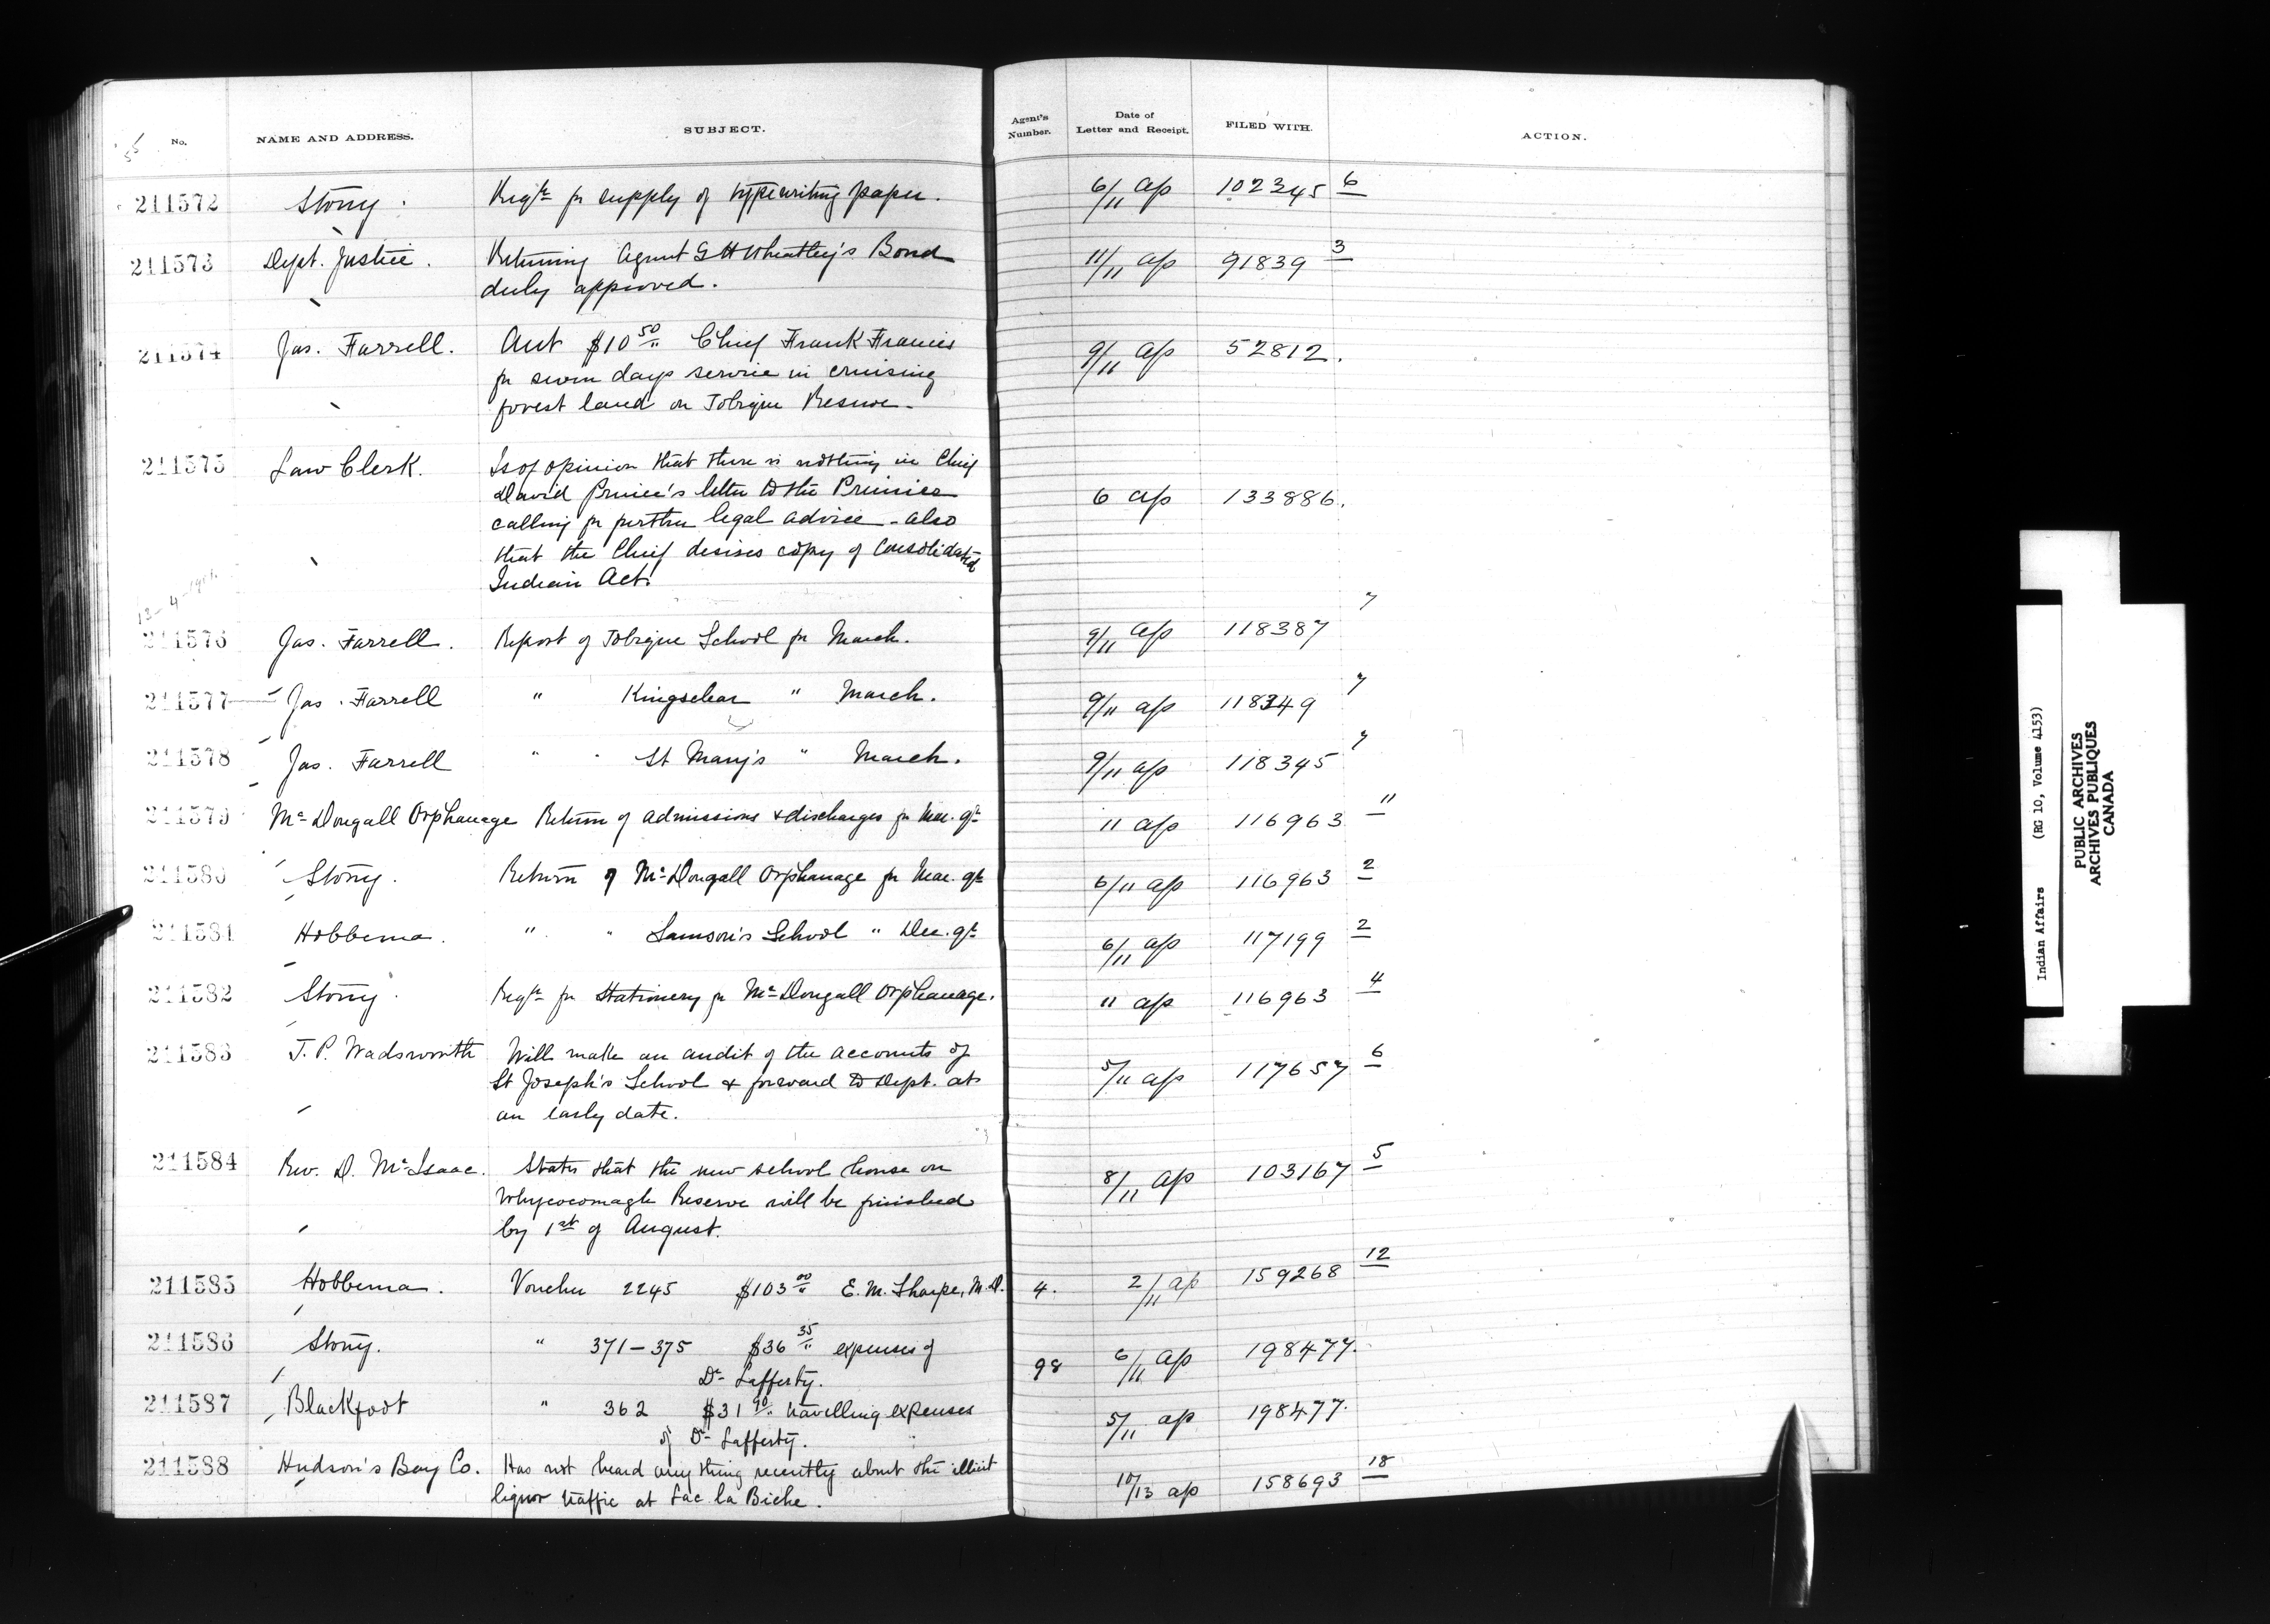 No. NAME AND ADDRESS. SUBJECT. Agent's Number. Date of Letter and Receipt. FILED WITH. ACTION.
211572 Stony. Reqn for supply of typewriting paper. 6/11 ap 102345 6
211573 Dept. Justice. Returning Agent G H Wheatley's Bond 11/11 ap 91839 3
duly approved.
211574 Jas. Farrell. Acct $10 50 Chief Frank Francis 9/11 ap 52812.
for seven days service in cruising
forest land on Tobique Reserve.
211575 Law Clerk. Is of opinion that there is nothing in Chief
David Prince's letter to the Premier 6 ap 133886.
calling for further legal advice - also
that the Chief desires copy of Consolidated
Indian Act.
211576 Jas. Farrell. Report of Tobique School for March. 9/11 ap 118387 7
211577 Jas. Farrell " Kingsclear " March. 9/11 ap 118349 7
211578 Jas. Farrell " " St Mary's " March. 9/11 ap 118345 7
211579 McDougall Orphanage Return of admissions & discharges for Mar. qr 11 ap 116963 11
211580 Stony. Return of McDougall Orphanage for Mar. qr 6/11 ap 116963 2
211581 Hobbema. " " Samson's School " Dec. qr 6/11 ap 117199 2
211582 Stony. Reqn for Stationery for McDougall Orphanage. 11 ap 116963 4
211583 T. P. Wadsworth Will make an audit of the accounts of 5/11 ap 117657 6
St Joseph's School & forward to Dept. at
an early date.
211584 Rev. D. McIsaac. States that the new school house on 8/11 ap 103167 5
Whycocomagh Reserve will be finished
by 1st of August.
211585 Hobbema. Voucher 2245 $103 00 E. M. Sharpe, M.D. 4. 2/11 ap 159268 12
211586 Stony. " 371-375 $36 35 expenses of 98 6/11 ap 198477.
Dr Lafferty.
211587 Blackfoot " 362 $31 90 travelling expenses 5/11 ap 198477.
of Dr Lafferty.
211588 Hudson's Bay Co. Has not heard anything recently about the illicit 10/13 ap 158693 18
liquor traffic at Lac la Biche.
Indian Affairs (RG 10, Volume 4153)
PUBLIC ARCHIVES
ARCHIVES PUBLIQUES
CANADA